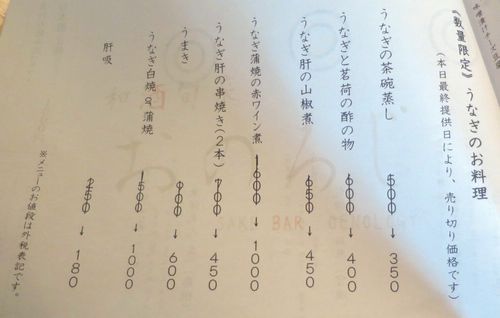 味噌漬けチーズ豆腐
《数量限定》うなぎのお料理
（本日最終提供日により、売り切り価格です）
うなぎの茶碗蒸し 500 → 350
うなぎと茗荷の酢の物 600 → 400
うなぎ肝の山椒煮 650 → 450
うなぎ蒲焼の赤ワイン煮 1600 → 1000
うなぎ肝の串焼き（2本） 700 → 450
うまき 900 → 600
うなぎ白焼 or 蒲焼 1500 → 1000
肝吸 250 → 180
※メニューのお値段は外税表記です。